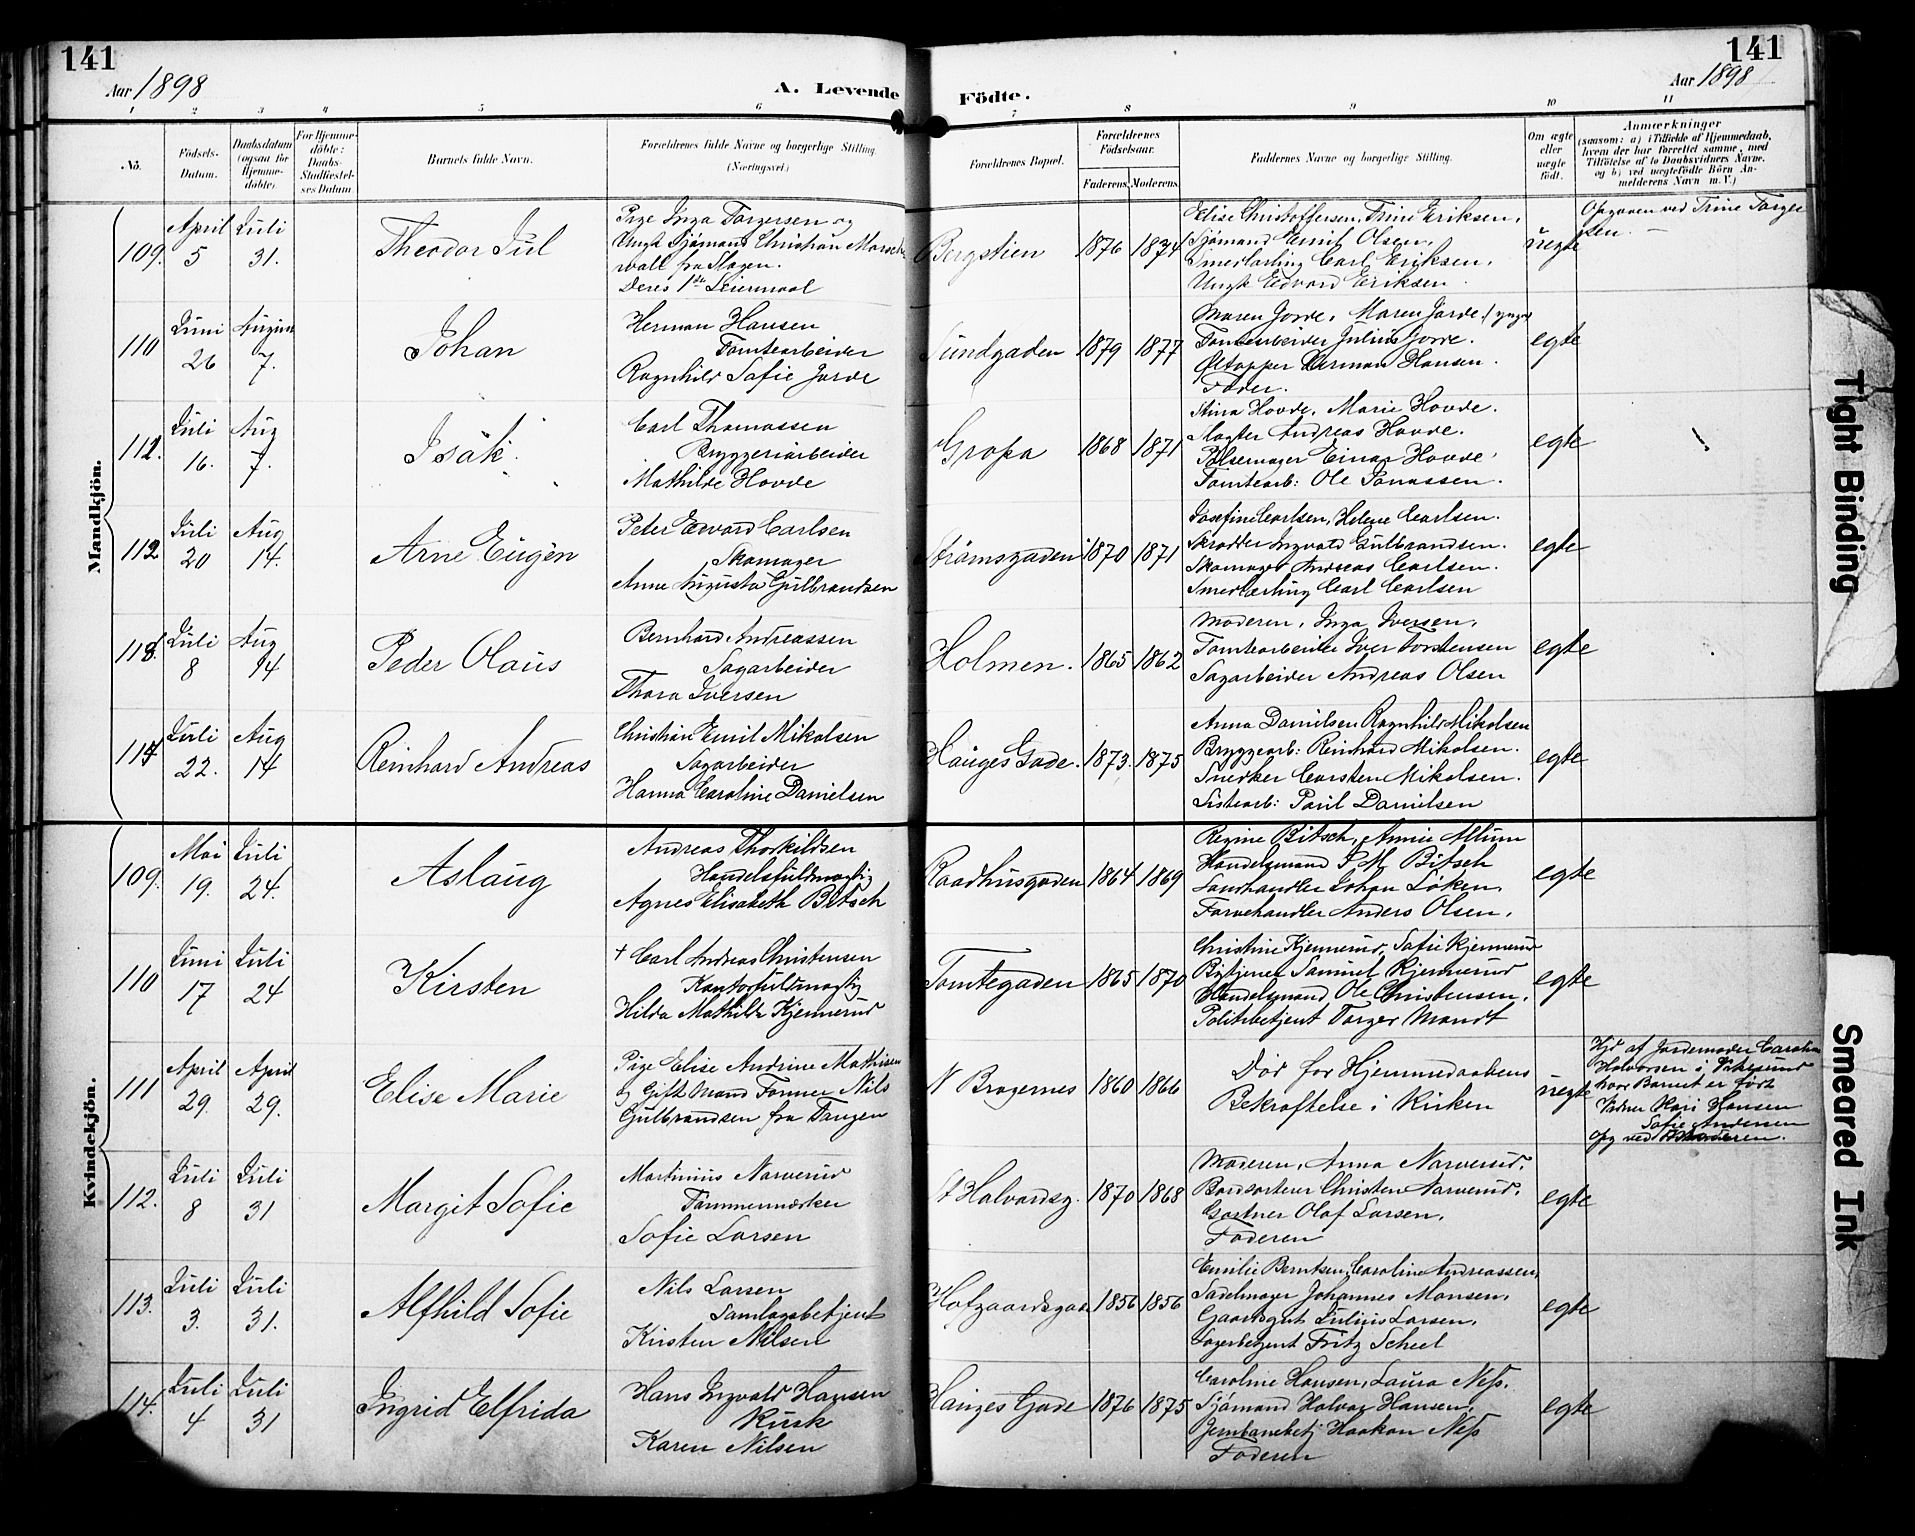 141
141
Aar 1898
A. Levende Födte.
Aar 1898
1 2 3 4 5 6 7 8 9 10 11
No.
Födsels-Datum.
Daabsdatum (ogsaa for Hjemme-döbte).
For Hjemme-döbte: Daabs-Stadfæstel-ses Datum.
Barnets fulde Navn.
Forældrenes fulde Navne og borgerlige Stilling. (Næringsvei.)
Forældrenes Bopæl.
Forældrenes Födselsaar.
Faderens. Moderens.
Faddernes Navne og borgerlige Stilling.
Om ægte eller uægte födt.
Anmærkninger
(saasom: a) i Tilfælde af Hjemmedaab, hvem der har forrettet samme, med Tilföielse af to Daabsvidners Navne, og b) ved uægtefödte Börn An-melderens Navn m. V.)
Mandkjön.
109. April 5 Juli 31. Theodor Jul
Pige Inga Torgersen og
Ungk Sjömand Christian
wall fra Slagen.
Deres 1ste Leiermaal
Bergstien 1876 1874
Elise Christoffersen, Trine Eriksen,
Sjömand Emil Olsen,
Smedlærling Carl Eriksen,
Ungk Edvard Eriksen
uegte
Opgaven ved Trine Torger
sen.
110 Juni 26 August 7. Johan
Herman Hansen
Tomtearbeider
Ragnhild Sofie Jorde
Sundgaden 1879 1877
Maren Jorde, Maren Jorde d yngre
Tomtearbeider Julius Jorde.
Øltapper Herman Hansen.
Fader.
egte
111. Juli 16. Aug 7. Isak
Carl Thomassen
Bryggeriarbeider
Mathilde Hovde
Gropa 1868 1871
Stina Hovde, Marie Hovde.
Slagter Andreas Hovde.
Pölsemager Einar Hovde,
Tomtearb: Ole Jonassen.
egte
112 Juli 20 Aug 14. Arne Eugen
Peter Edvard Carlsen
Skomager
Anne Augusta Gulbrandsen
Strömsgaden 1870 1871
Josefine Carlsen, Helene Carlsen.
Skrædder Ingvald Gulbrandsen.
Skomager Andreas Carlsen.
Smedlærling Carl Carlsen
egte
113. Juli 8 Aug 14 Peder Olaus
Bernhard Andreassen
Sagarbeider
Thora Iversen
Holmen. 1865 1862
Moderen, Inga Iversen,
Tomtearbeider Iver Torstensen
Sagarbeider Andreas Olsen
egte
114 Juli 22. Aug 14 Reinhard Andreas
Christian Emil Mikalsen
Sagarbeider
Hanna Caroline Danielsen
Hauges Gade. 1873. 1875
Anna Danielsen Ragnhild Mikalsen
Bryggearb: Reinhard Mikalsen.
Snedker Carsten Mikalsen.
Paul Danielsen
egte
Kvindekjön.
109. Mai 19. Juli 24. Aslaug
Andreas Thorkildsen
Handelsfuldmægtig
Agnes Elisabeth Bitsch
Raadhusgaden 1864 1869
Regine Bitsch, Annie Allum
Handelsmand P M Bitsch
Johan Löken,
Farvehandler Anders Olsen,
egte
110 Juni 17 Juli 24 Kirsten
+ Carl Andreas Christensen
Kontorfuldmægtig
Hilda Mathilde Kjennerud
Tomtegaden 1865 1870
Christine Kjennerud, Sofie Kjennerud
Bytjener Samuel Kjennerud
Handelsmand Ole Christensen,
Politibetjent Torger Mandt
egte
111 April 29. April 29. Elise Marie
Pige Elise Andrine Mathisen
og Gift Mand Tömmer Nils
Gulbrandsen fra Tangen
N Bragernes 1860 1866
Död for Hjemmedaabens
Bekræftelse i Kirken
uegte
Hjd af Jordemoder Caroline
Halvorsen i
hvor Barnet er födt
Vidner Kari Hansen
Sofie Andersen
Opg ved Moderen.
112. Juli 8 Juli 31 Margit Sofie
Martinius Narverud
Tömmermærker
Sofie Larsen
St Halvardsg. 1870 1868
Moderen, Anna Narverud,
Bordsorterer Christen Narverud,
Gartner Olaf Larsen,
Faderen
egte
113. Juli 3. Juli 31. Alfhild Sofie
Nils Larsen
Samlagsbetjent
Kirsten Nilsen
Hofgaardsgad 1856 1856
Emilie Berntsen, Caroline Andreassen,
Sadelmager Johannes Monsen,
Gaardsgut Julius Larsen,
Lagerbetjent Fritz Scheel
egte
114. Juli 4 Juli 31 Ingrid Elfrida
Hans Ingvald Hansen
Kusk
Karen Nilsen
Hauges Gade 1876 1875
Caroline Hansen, Laura Ness,
Sjömand Halvor Hansen,
Jernbanebetj Haakon Ness
Faderen
egte
Tight Binding
Smeared Ink